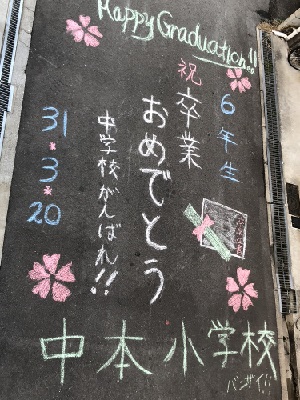 Happy Graduation!!
6年生
祝卒業
おめでとう
中学校がんばれ!!
31.3.20
中本小学校
バンザイ!!